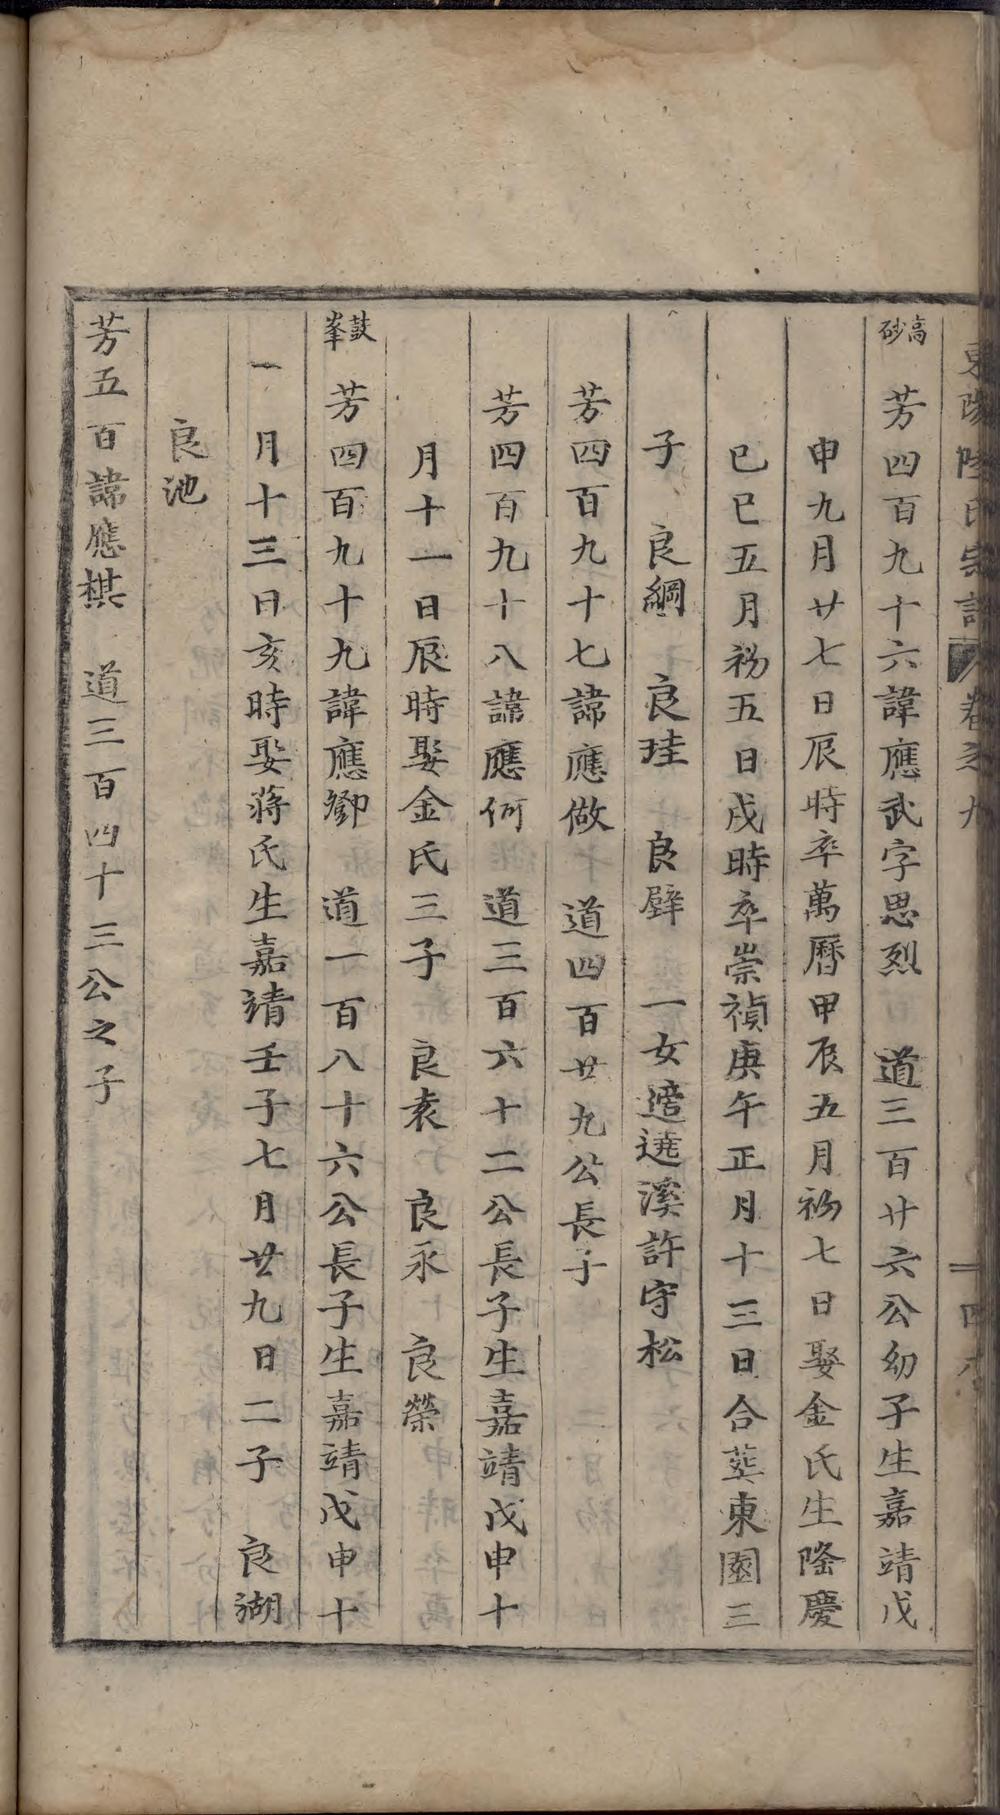 東陽陸氏宗譜 卷之九 
高砂
芳四百九十六諱應武字思烈 道三百廿六公幼子生嘉靖戊
申九月廿七日辰時卒萬曆甲辰五月初七日娶金氏生隆慶
己巳五月初五日戌時卒崇禎庚午正月十三日合葬東園三
子 良綱 良珪 良壁 一女適遶溪許守松
芳四百九十七諱應做 道四百廿九公長子
芳四百九十八諱應何 道三百六十二公長子生嘉靖戊申十
月十一日辰時娶金氏三子 良袁 良永 良榮
鼓峯
芳四百九十九諱應鄉 道一百八十六公長子生嘉靖戊申十
一月十三日亥時娶蔣氏生嘉靖壬子七月廿九日二子 良湖
良池
芳五百諱應棋 道三百四十三公之子